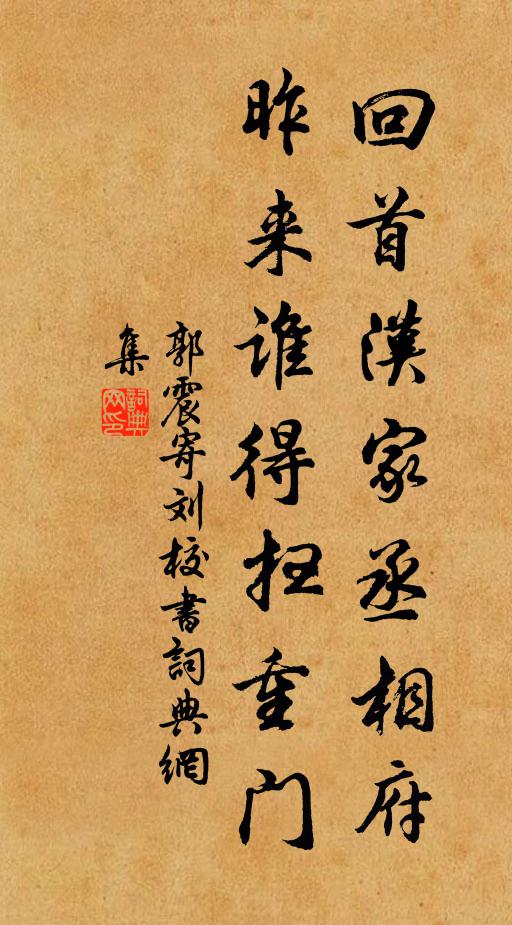 回首漢家丞相府
昨来誰得扫重门
郭震寄刘校書詞典網
集
詞典网印